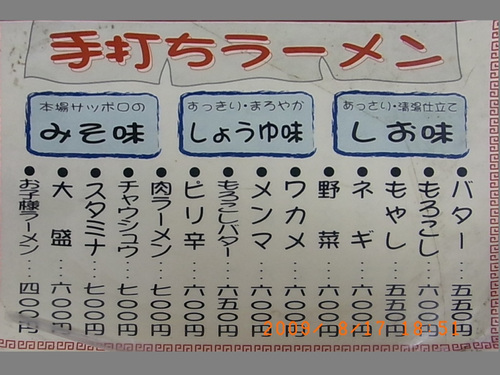 手打ちラーメン
本場サッポロの
みそ味
すっきり・まろやか
しょうゆ味
あっさり・清湯仕立て
しお味
●バター……五五〇円
●もろこし……六〇〇円
●もやし……五五〇円
●ネギ……六〇〇円
●野菜……六〇〇円
●ワカメ……六〇〇円
●メンマ……六〇〇円
●もろこしバター……六五〇円
●ピリ辛……六〇〇円
●肉ラーメン……七〇〇円
●チャウシュウ……七〇〇円
●スタミナ……七〇〇円
●大盛……六〇〇円
●お子様ラーメン……四〇〇円
2009/ 8/17 18:51